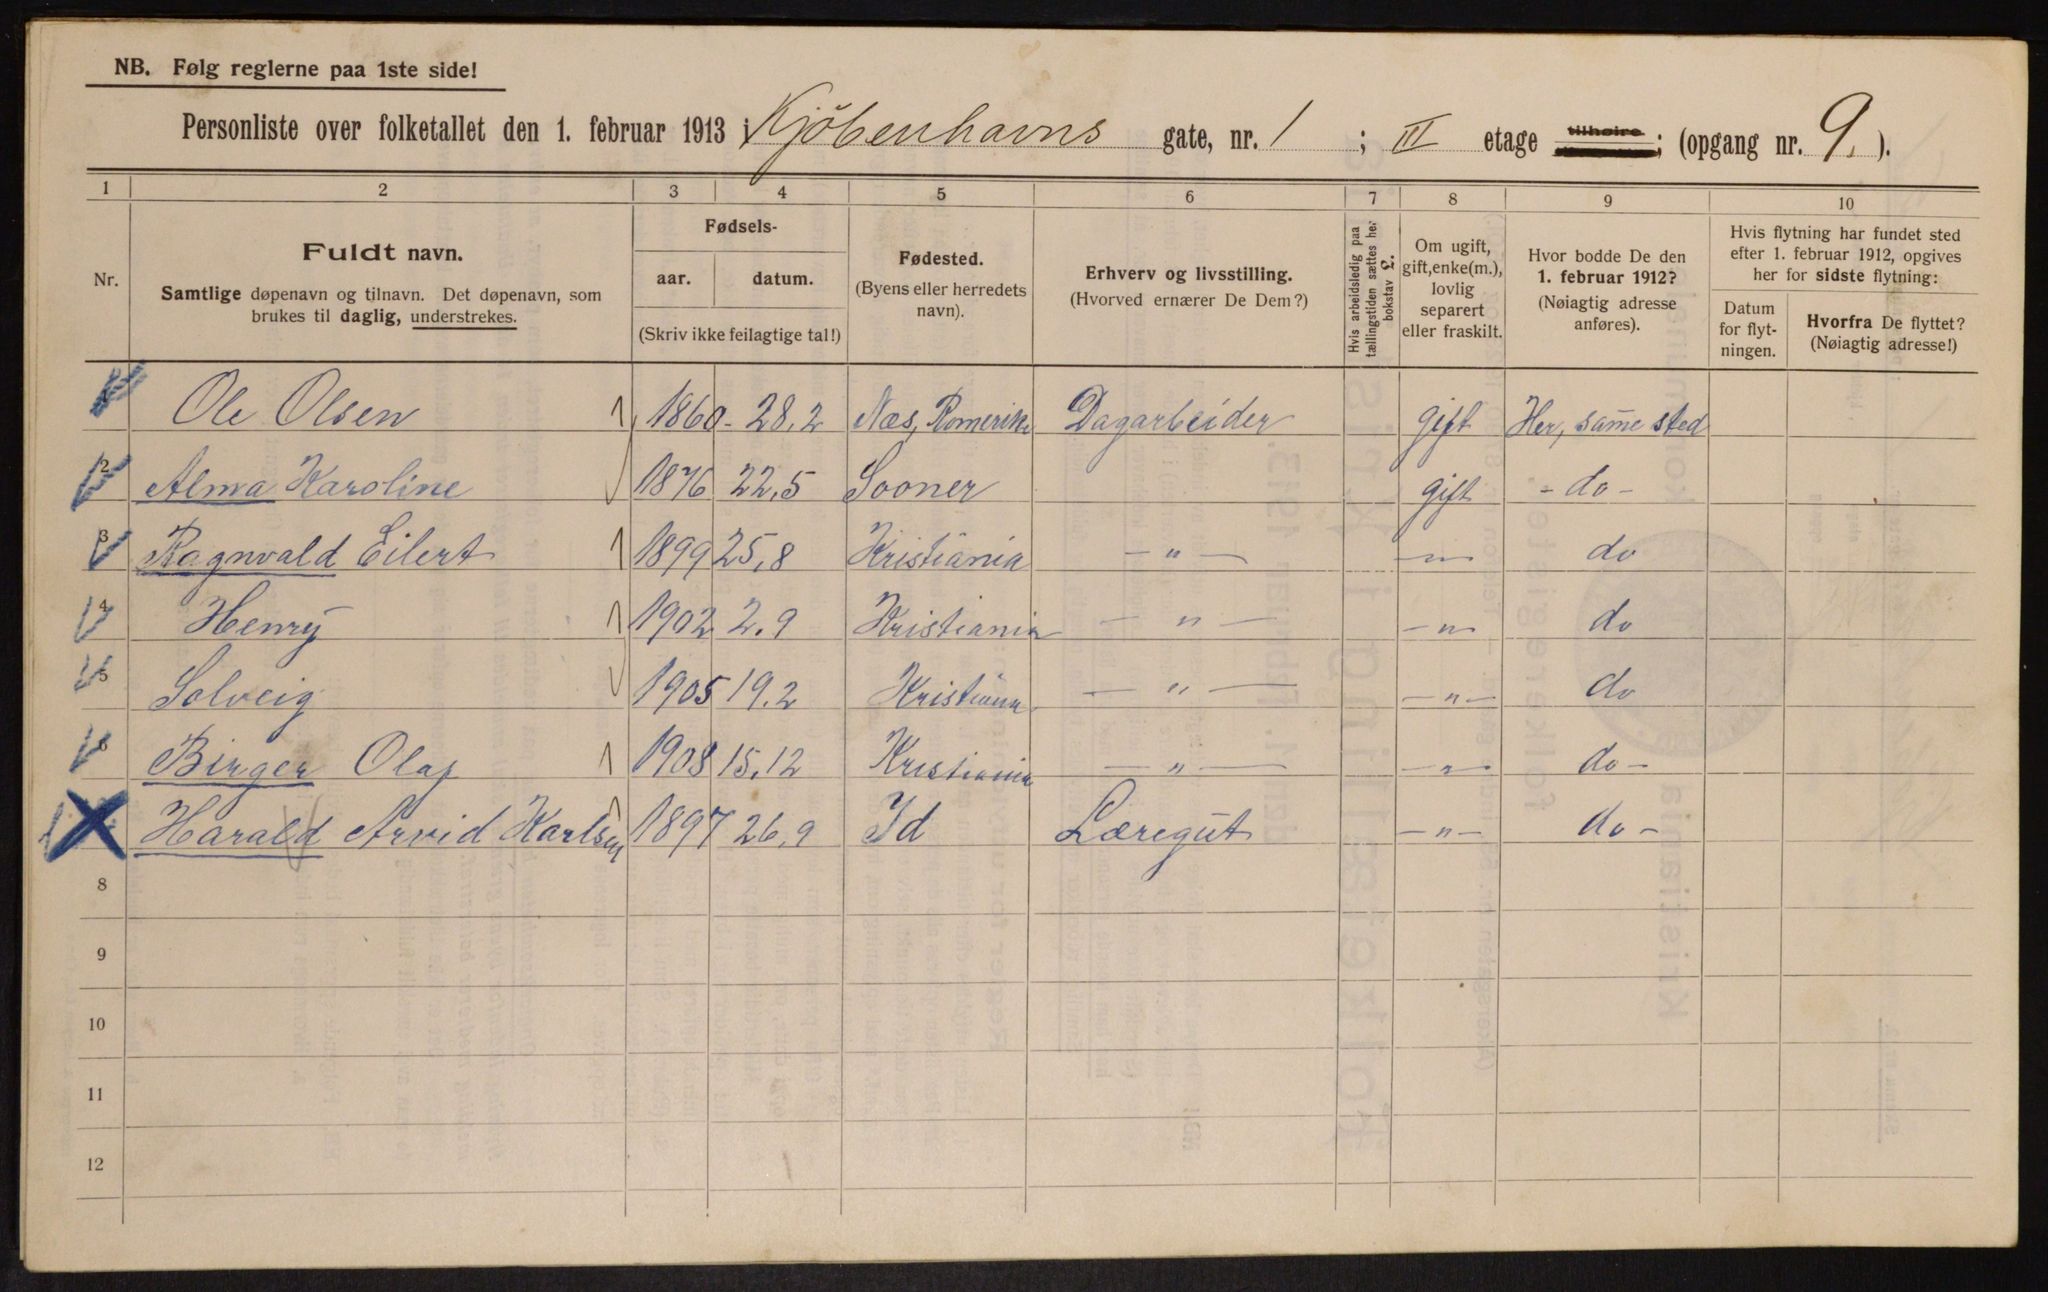 NB. Følg reglerne paa 1ste side!
Personliste over folketallet den 1. februar 1913 i Kjöbenhavns gate, nr. 1 ; III etage ; (opgang nr. 9. ).
1 2 3 4 5 6 7 8 9 10
Nr.
Fuldt navn.
Samtlige døpenavn og tilnavn. Det døpenavn, som
brukes til daglig, understrekes.
Fødsels-
aar. datum.
(Skriv ikke feilagtige tal!)
Fødested.
(Byens eller herredets
navn).
Erhverv og livsstilling.
(Hvorved ernærer De Dem?)
Hvis arbeidsledig paa
tællingstiden sættes her
bokstav L.
Om ugift,
gift, enke(m.),
lovlig
separert
eller fraskilt.
Hvor bodde De den
1. februar 1912?
(Nøiagtig adresse
anføres).
Hvis flytning har fundet sted
efter 1. februar 1912, opgives
her for sidste flytning:
Datum
for flyt-
ningen.
Hvorfra De flyttet?
(Nøiagtig adresse!)
Ole Olsen 1860 - 28.2 Næs, Romerike Dagarbeider gift Her, samme sted
2 Alma Karoline 1876 22.5 Sooner gift - do -
3 Ragnvald Eilert 1899 25.8 Kristiania — " — — " — do
4 Henry 1902 2.9 Kristiania — " — — " — do
5 Solveig 1905 19.2 Kristiania — " — — " — do
6 Birger Olaf 1908 15.12 Kristiania — " — — " — do -
Harald Arvid Karlsen 1897 26.9 Id Læregut — " — do -
8
9
10
11
12